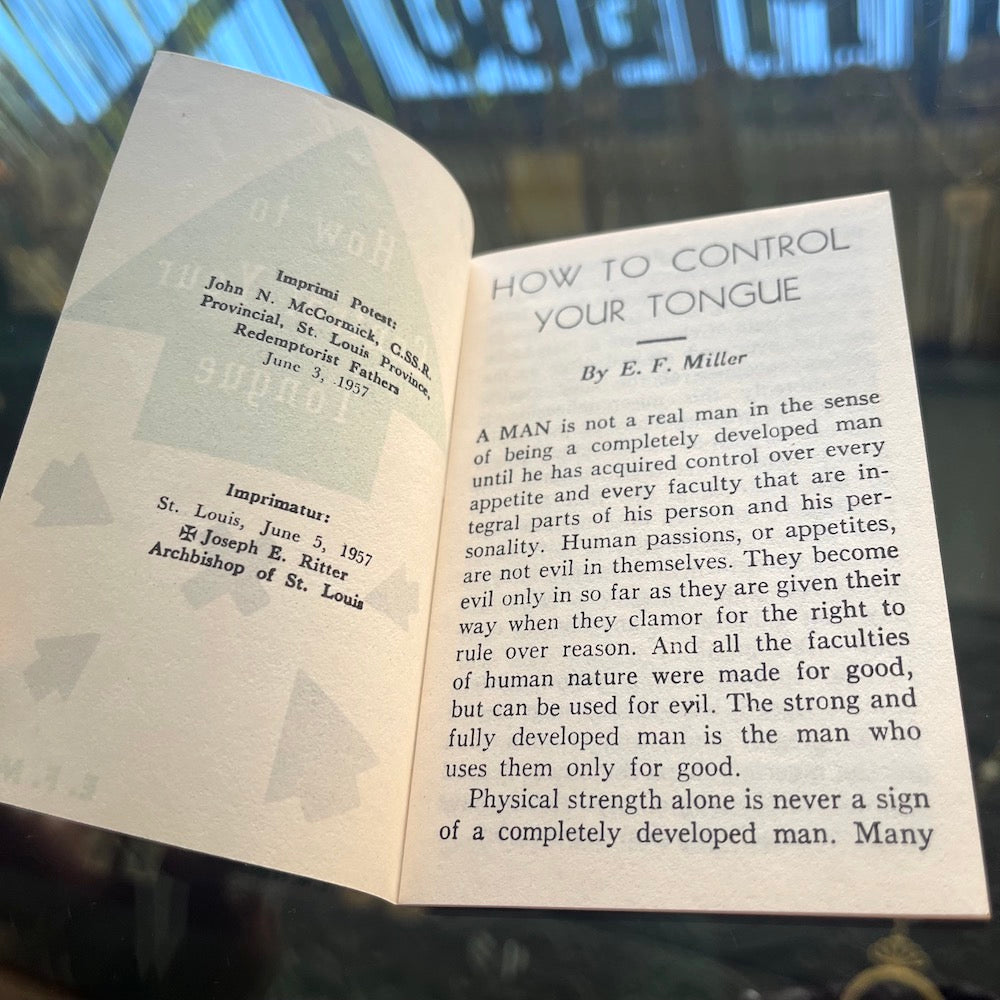 Imprimi Potest:
John N. McCormick, C.SS.R.
Provincial, St. Louis Province,
Redemptorist Fathers
June 3, 1957
Imprimatur:
St. Louis, June 5, 1957
✠ Joseph E. Ritter
Archbishop of St. Louis
HOW TO CONTROL
YOUR TONGUE
By E. F. Miller
A MAN is not a real man in the sense
of being a completely developed man
until he has acquired control over every
appetite and every faculty that are in-
tegral parts of his person and his per-
sonality. Human passions, or appetites,
are not evil in themselves. They become
evil only in so far as they are given their
way when they clamor for the right to
rule over reason. And all the faculties
of human nature were made for good,
but can be used for evil. The strong and
fully developed man is the man who
uses them only for good.
Physical strength alone is never a sign
of a completely developed man. Many